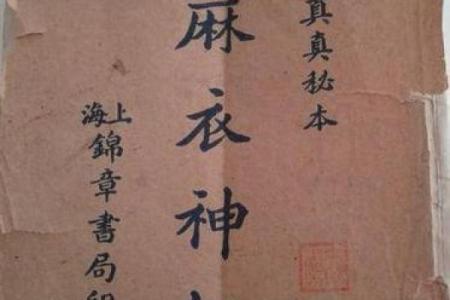 真真秘本
麻衣神
上海
錦章書局